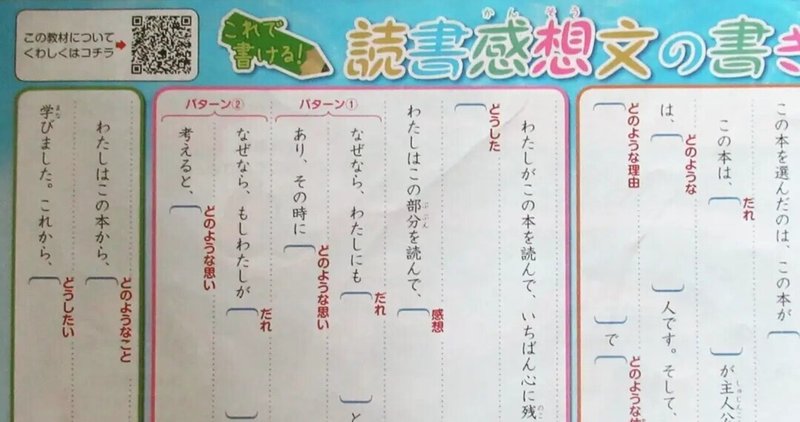 この教材について
くわしくはコチラ
これで
書ける！
読書感想文の書き
かんそう
この本を選んだのは、この本が
どのような理由
この本は、
だれ
が主人公
しゅじんこう
は、
どのような
人です。そして、
で
どのような
わたしがこの本を読んで、いちばん心に残
のこ
どうした
わたしはこの部分を読んで、
ぶぶん
感想
パターン①
なぜなら、わたしにも
だれ
と
あり、その時に
どのような思い
パターン②
なぜなら、もしわたしが
だれ
考えると、
どのような思い
わたしはこの本から、
どのようなこと
学びました。これから、
まな
どうしたい